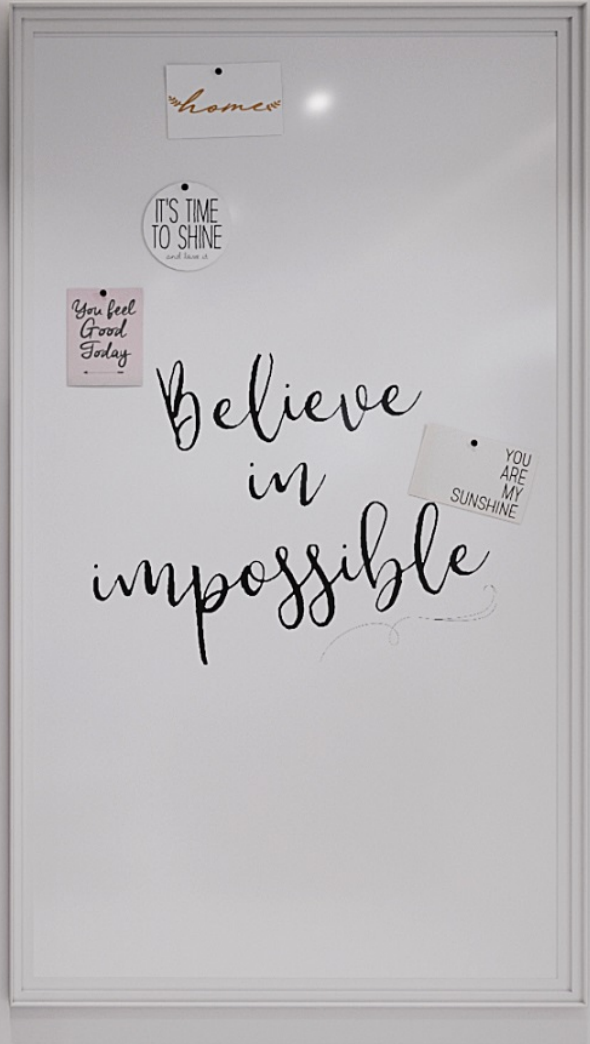 home
IT'S TIME
TO SHINE
and live it
You feel
Good
Today
Believe
in
impossible
YOU
ARE
MY
SUNSHINE